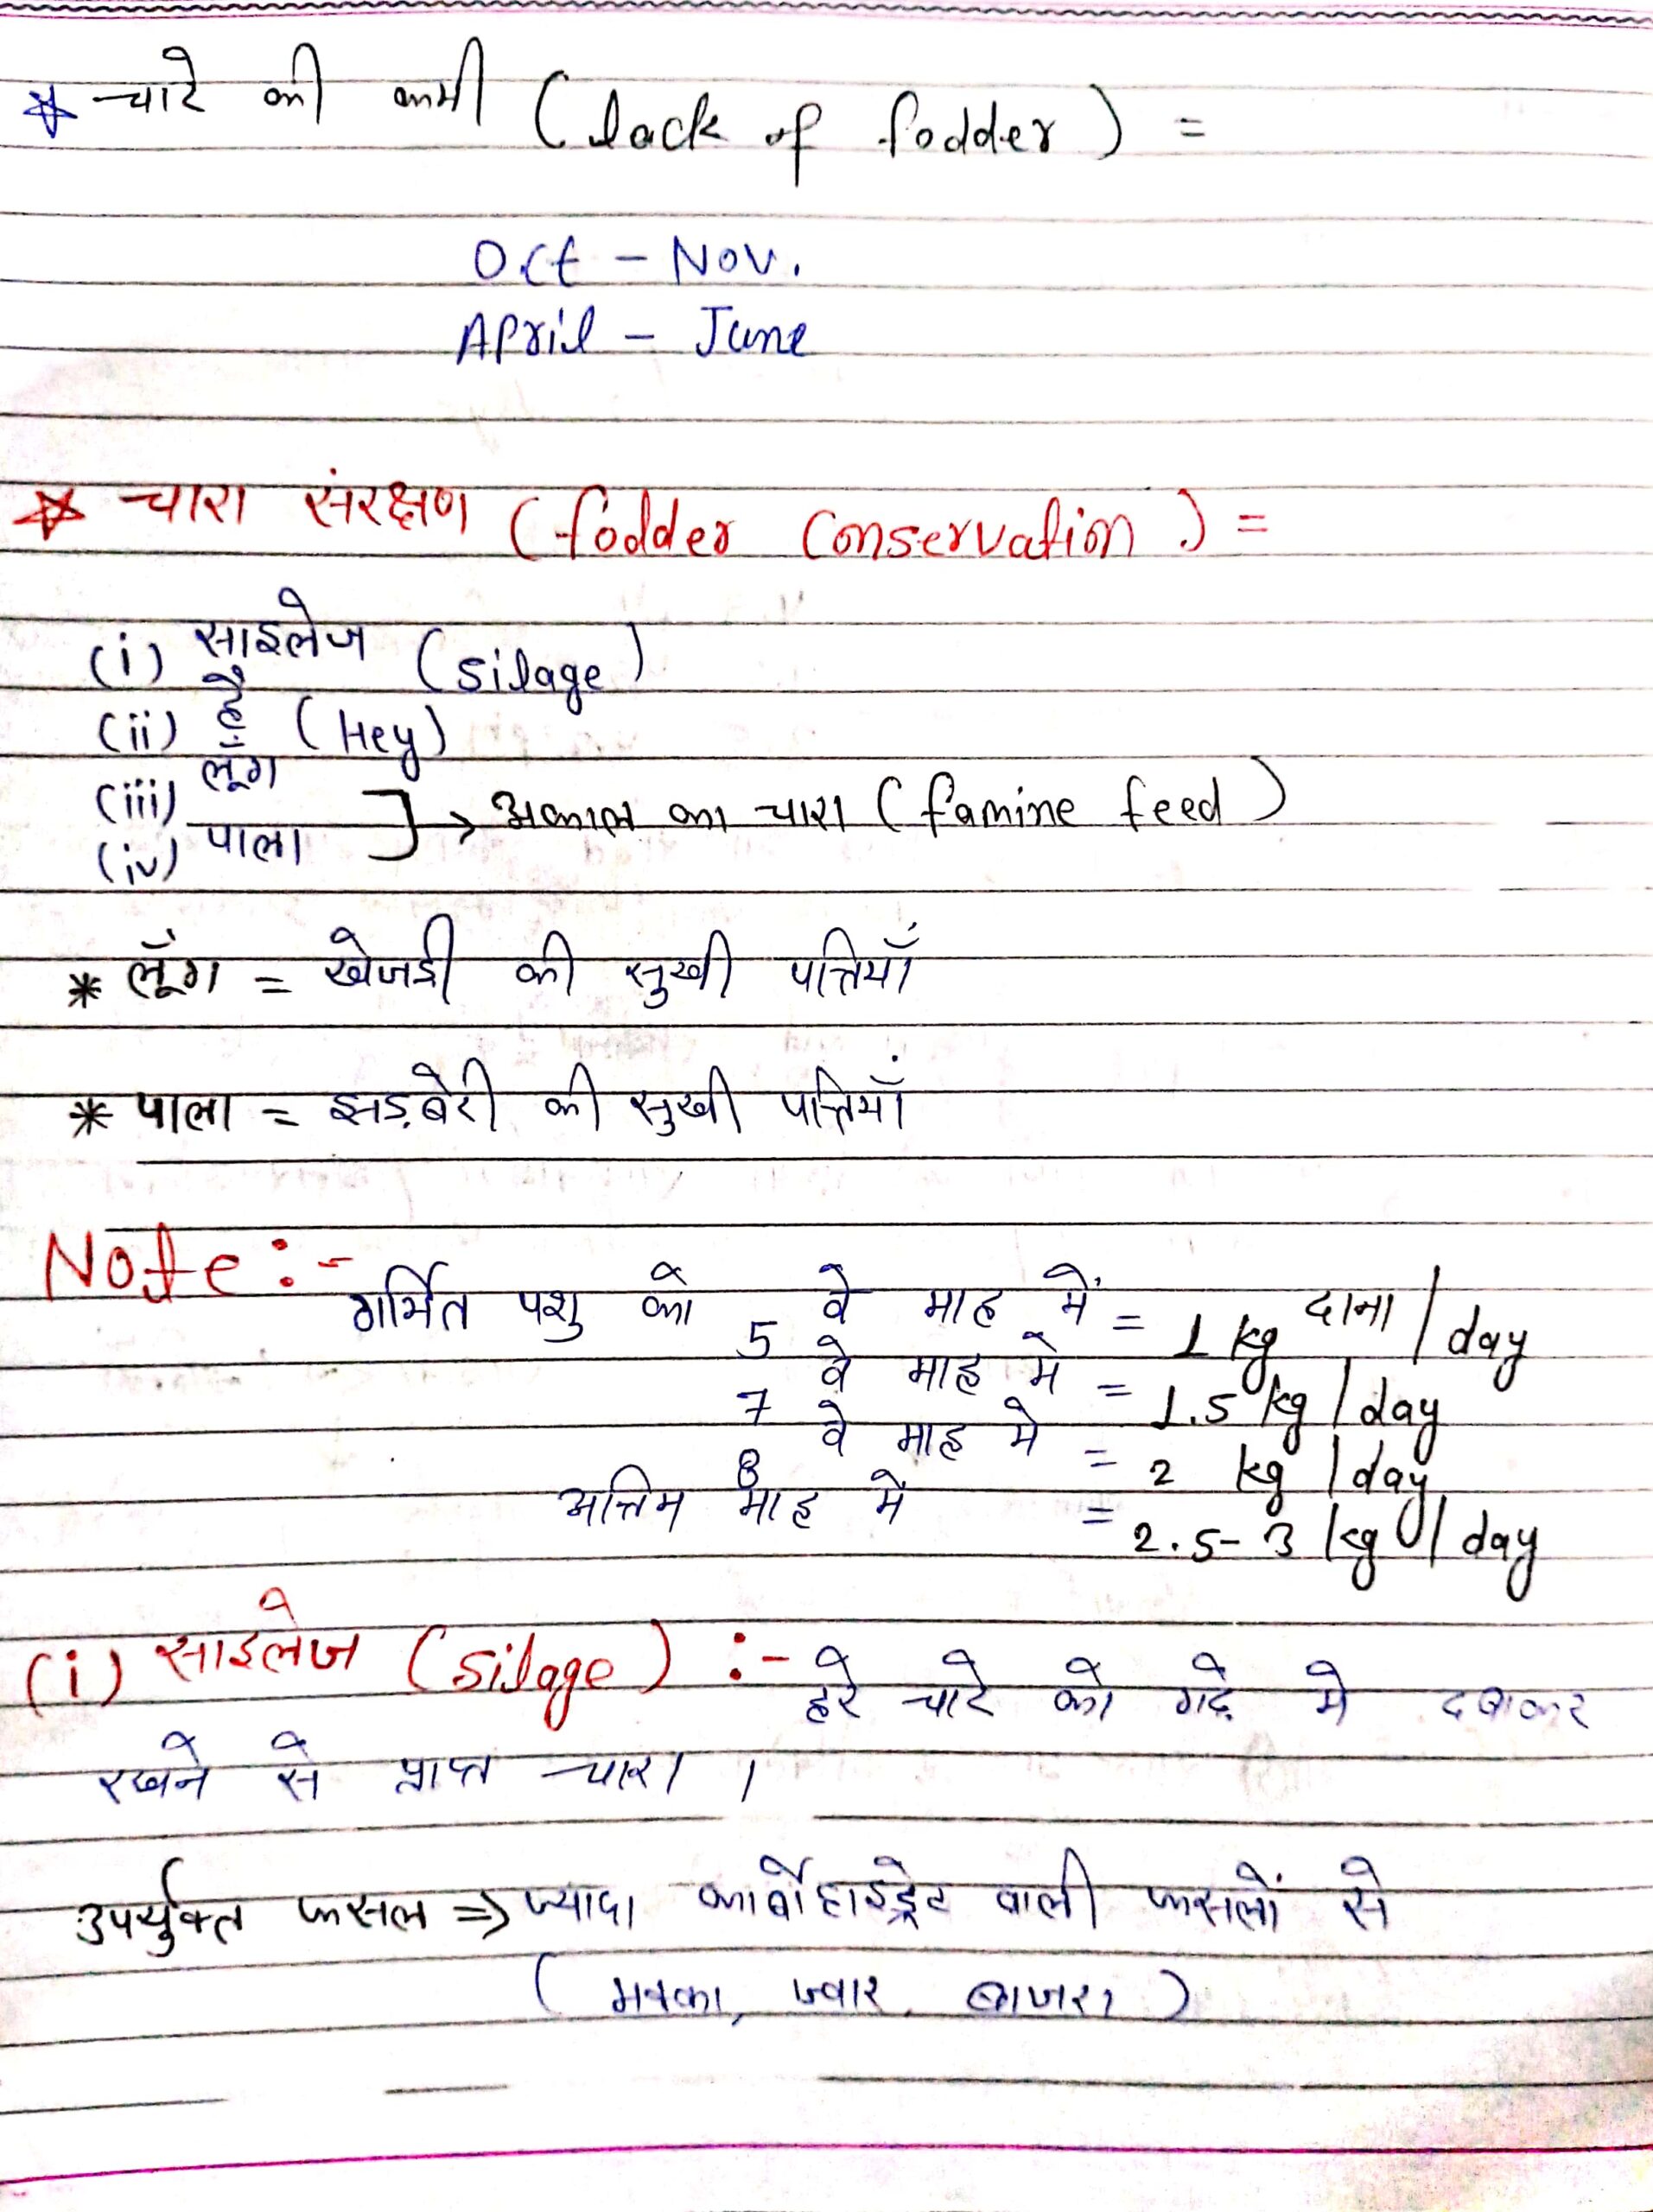 * चारे की कमी (lack of fodder) =
Oct - Nov.
April - June
* चारा संरक्षण (fodder conservation) =
(i) साइलेज (silage)
(ii) है (Hey)
(iii) लूँग
(iv) पाला ] → अकाल का चारा (famine feed)
* लूँग = खेजड़ी की सुखी पत्तियाँ
* पाला = झड़बेरी की सुखी पत्तियाँ
Note :-
गर्भित पशु को 5 वे माह में = 1 kg दाना / day
7 वे माह मे = 1.5 kg / day
8 वे माह मे = 2 kg / day
अन्तिम माह में = 2.5-3 kg / day
(i) साइलेज (silage) :- हरे चारे को गढ़े मे दबाकर
रखने से प्राप्त चारा ।
उपर्युक्त फसल => ज्यादा कार्बोहाइड्रेट वाली फसलों से
(मक्का, ज्वार, बाजरा)